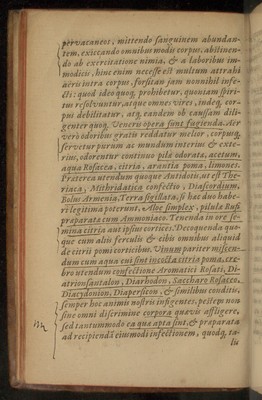 pervacaneos, mittendo sanguinem abundan-
tem, exiccando omnibus modis corpus, abstinen-
do ab exercitatione nimia, & a laboribus im-
modicis, hinc enim necesse est multum attrahi
aëris intra corpus, forsitan jam nonnihil infe-
cti: quod ideo quoq, prohibetur, quoniam spiri-
tus resolvuntur, atque omnes vires, indeq, cor-
pus debilitatur, atq, eandem ob caussam dili-
genter quoq, Veneris opera sunt fugienda. Aer
verò odoribus gratis reddatur melior, corpusq,
servetur purum ac mundum interius & exte-
rius, odorentur continuo pila odorata, acetum,
aqua Rosacea, citria, arantia poma, limones.
Præterea utendum quoque Antidotis, ut est The-
riaca, Mithridatica confectio, Diascordium,
Bolus Armenia, Terra sigillata, si hæc duo habe-
ri legitima poterunt, Aloë simplex, pilula Rufi
præparata cum Ammoniaco. Tenenda in ore se-
mina citria aut ipsius cortices. Decoquenda quo-
que cum aliis ferculis & cibis omnibus aliquid
de citrii pomi corticibus. Vinum pariter miscen-
dum cum aqua cui sint incocta citria poma, cre-
bro utendum confectione Aromatici Rosati, Di-
atrionsantalon, Diarhodon, Saccharo Rosaceo,
Diacydonion, Diapersicon, & similibus conditis,
semper hoc animis nostris infigentes, pestem non
sine omni discrimine corpora quævis affligere,
sed tantummodo ea quæ apta sint, & præparata
ad recipiendā eiusmodi infectionem, quodq, ta-